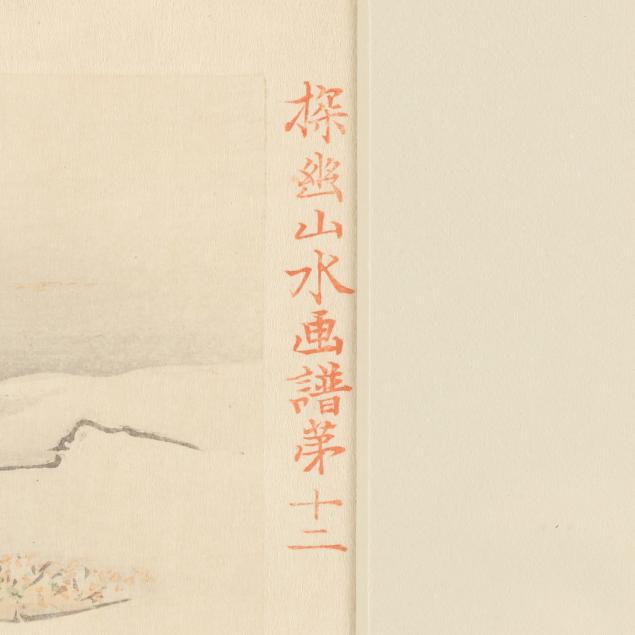 探幽山水画譜第十二